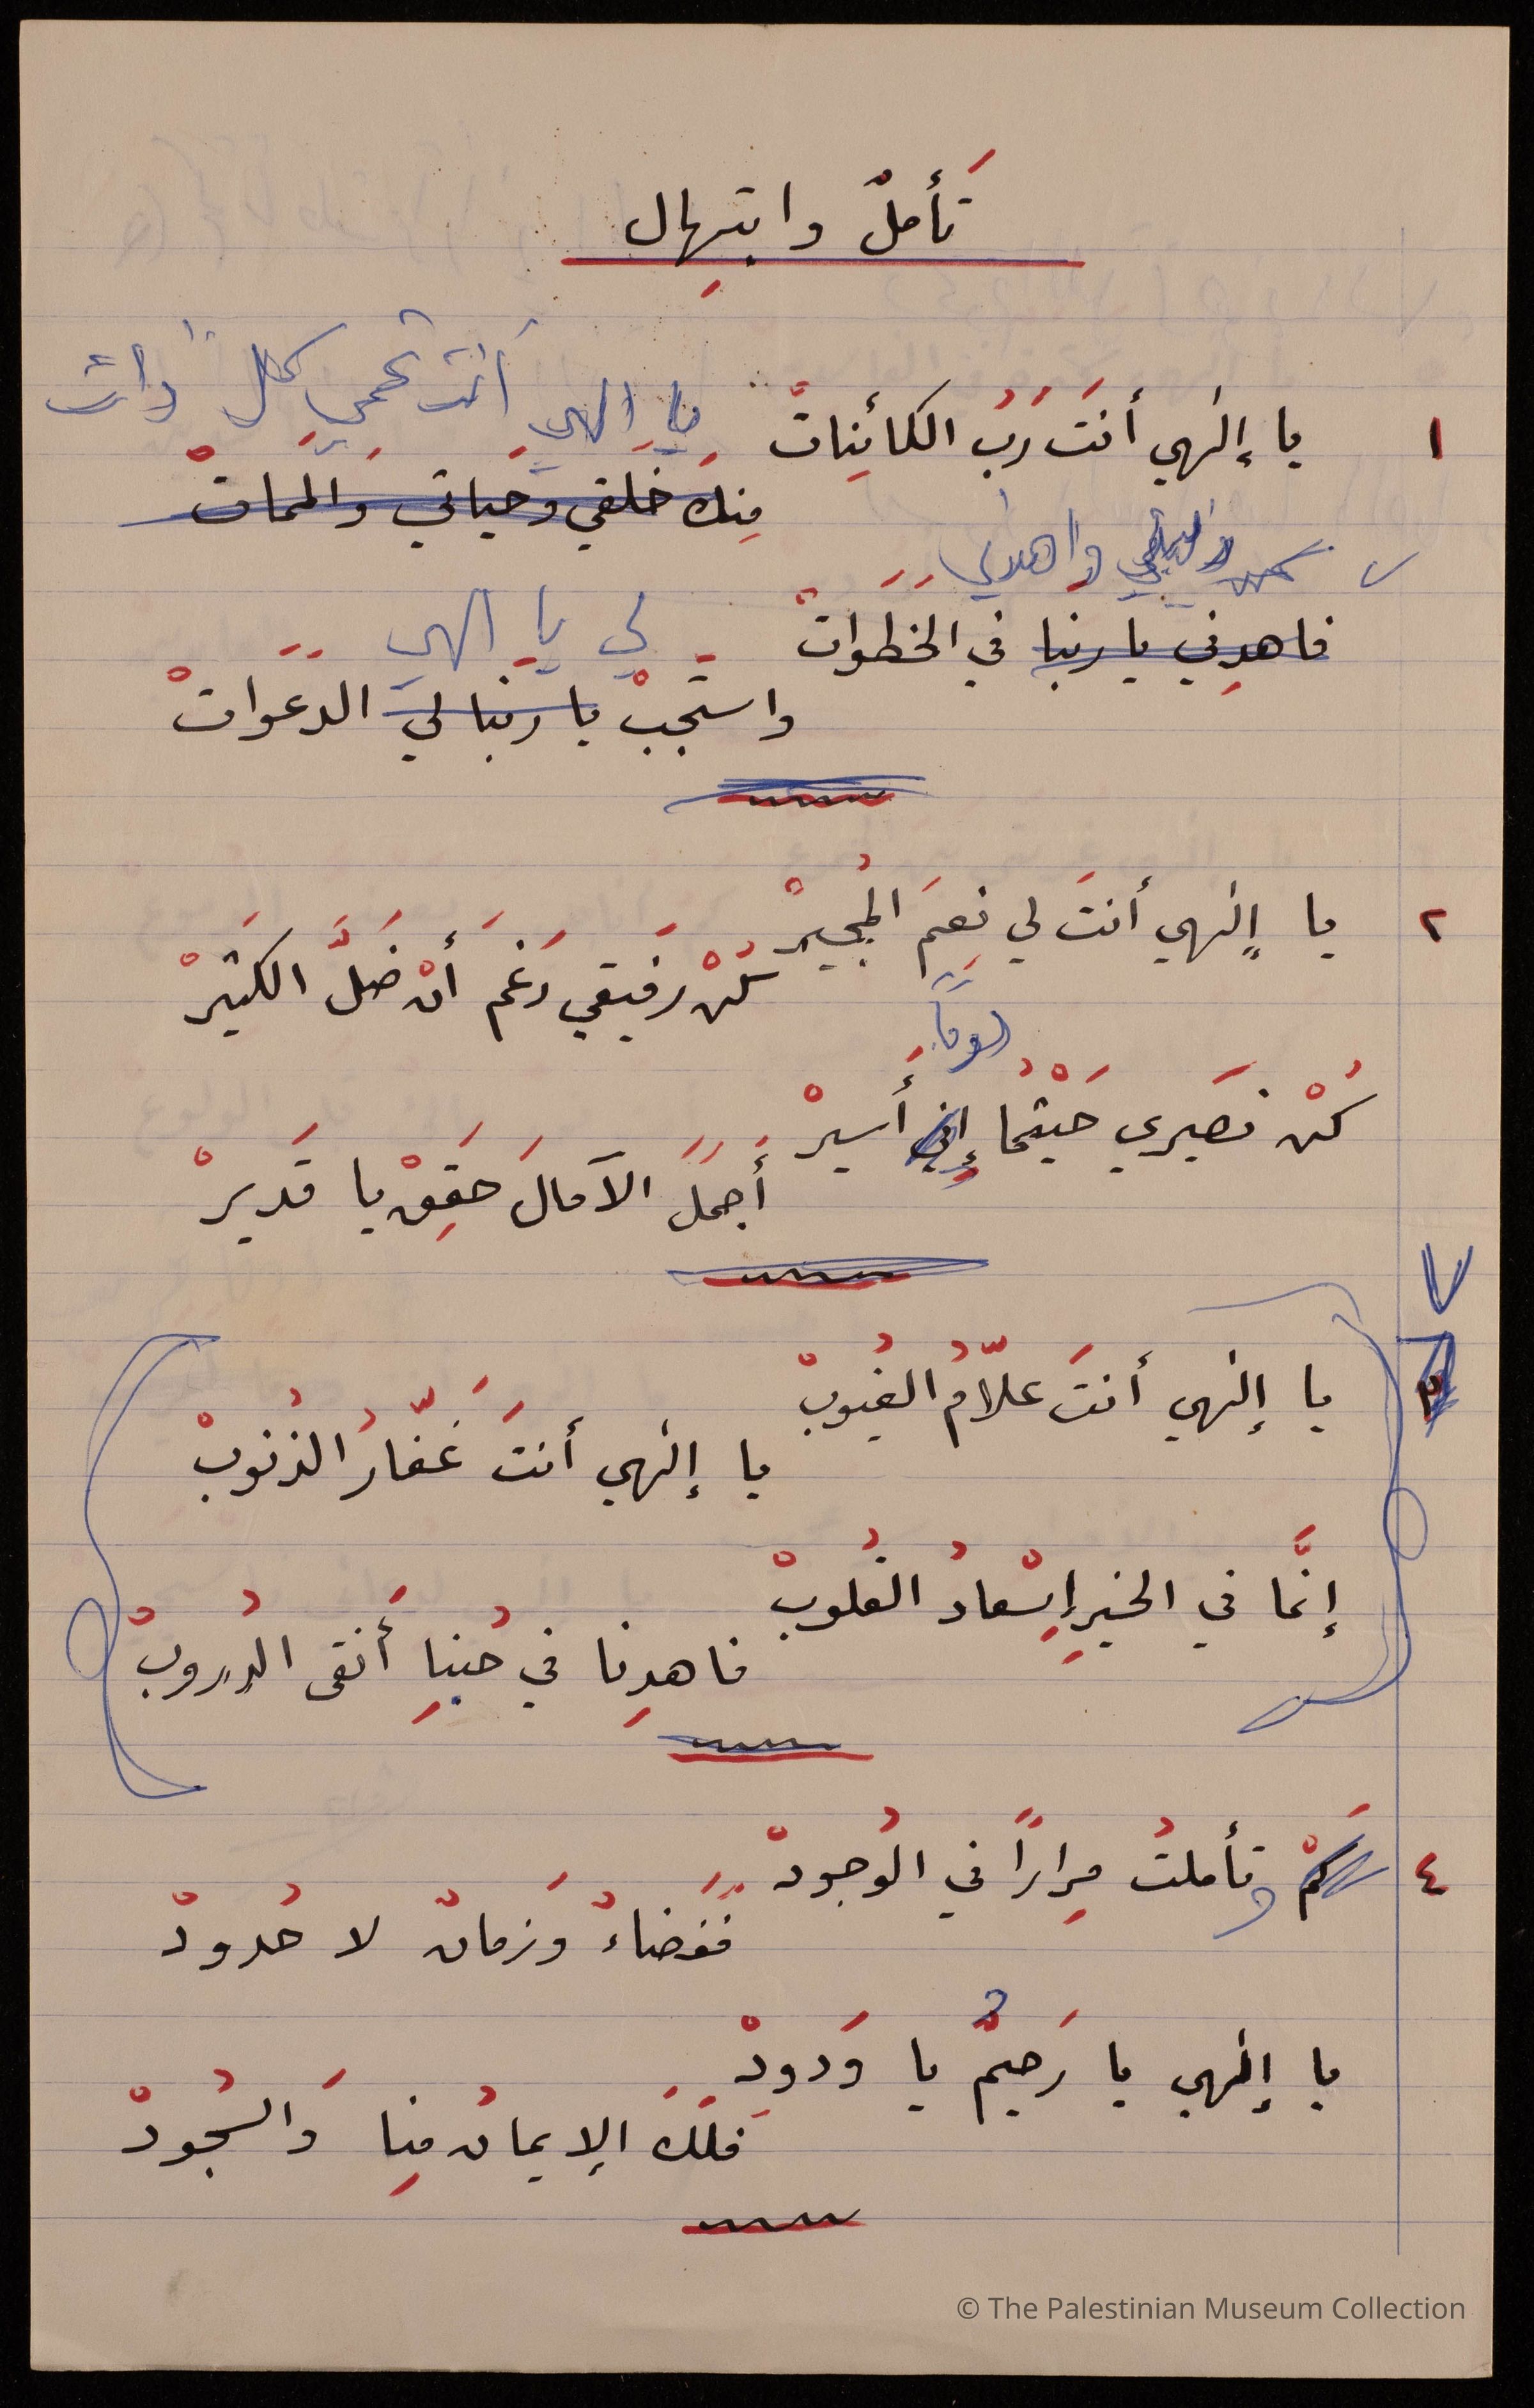 تَأملّ وابتِهال
يا إلٰهي أنتَ رَبُ الكائِناتْ
١
يا الهي أنت تحمي كل ذات
مِنكَ خَلقي وحَياتي وَالمماتْ
واهدني
فاهدِني يا ربنا في الخَطَواتْ
لي يا الهي
واستَجبْ يا ربنا لي الدَعَواتْ
٢
يا إلٰهي أنتَ لي نِعمَ المُجيرْ
كُنْ رَفيقي رَغمَ أنْ ضَلَّ الكَثيرْ
دوماً
كُنْ نَصيري حَيْثُما إني أَسيرْ
أَجمَلَ الآمالَ حَقِقْ يا قَديرْ
٣
يا إلٰهي أنتَ علّامُ الغُيوبْ
يا إلٰهي أنتَ غَفّارُ الذُنوبْ
إنَّما في الخيرِ إسْعادُ القُلوبْ
فاهدِنا في حُبِنا أَنقى الدُروبْ
٤
كَمْ تأملتُ مِراراً في الوُجودْ
فَفَضاءٌ وَزمانٌ لا حُدودْ
يا إلٰهي يا رَحيمُ يا وَدودْ
فَلَكَ الإيمانُ مِنا وَالسُجودْ
© The Palestinian Museum Collection